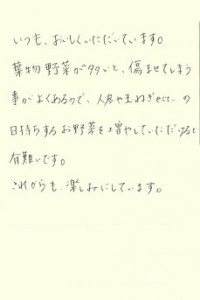 いつも、おいしくいただいています。
葉物野菜が多いと、傷ませてしまう
事がよくあるので、人参や玉ねぎなど、の
日持ちするお野菜を増やしていただけると
有難いです。
これからも、楽しみにしています。